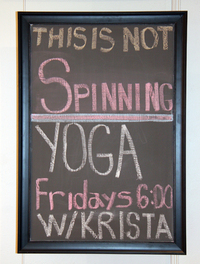 THIS IS NOT
SPINNING
YOGA
Fridays 6:00
W/KRISTA